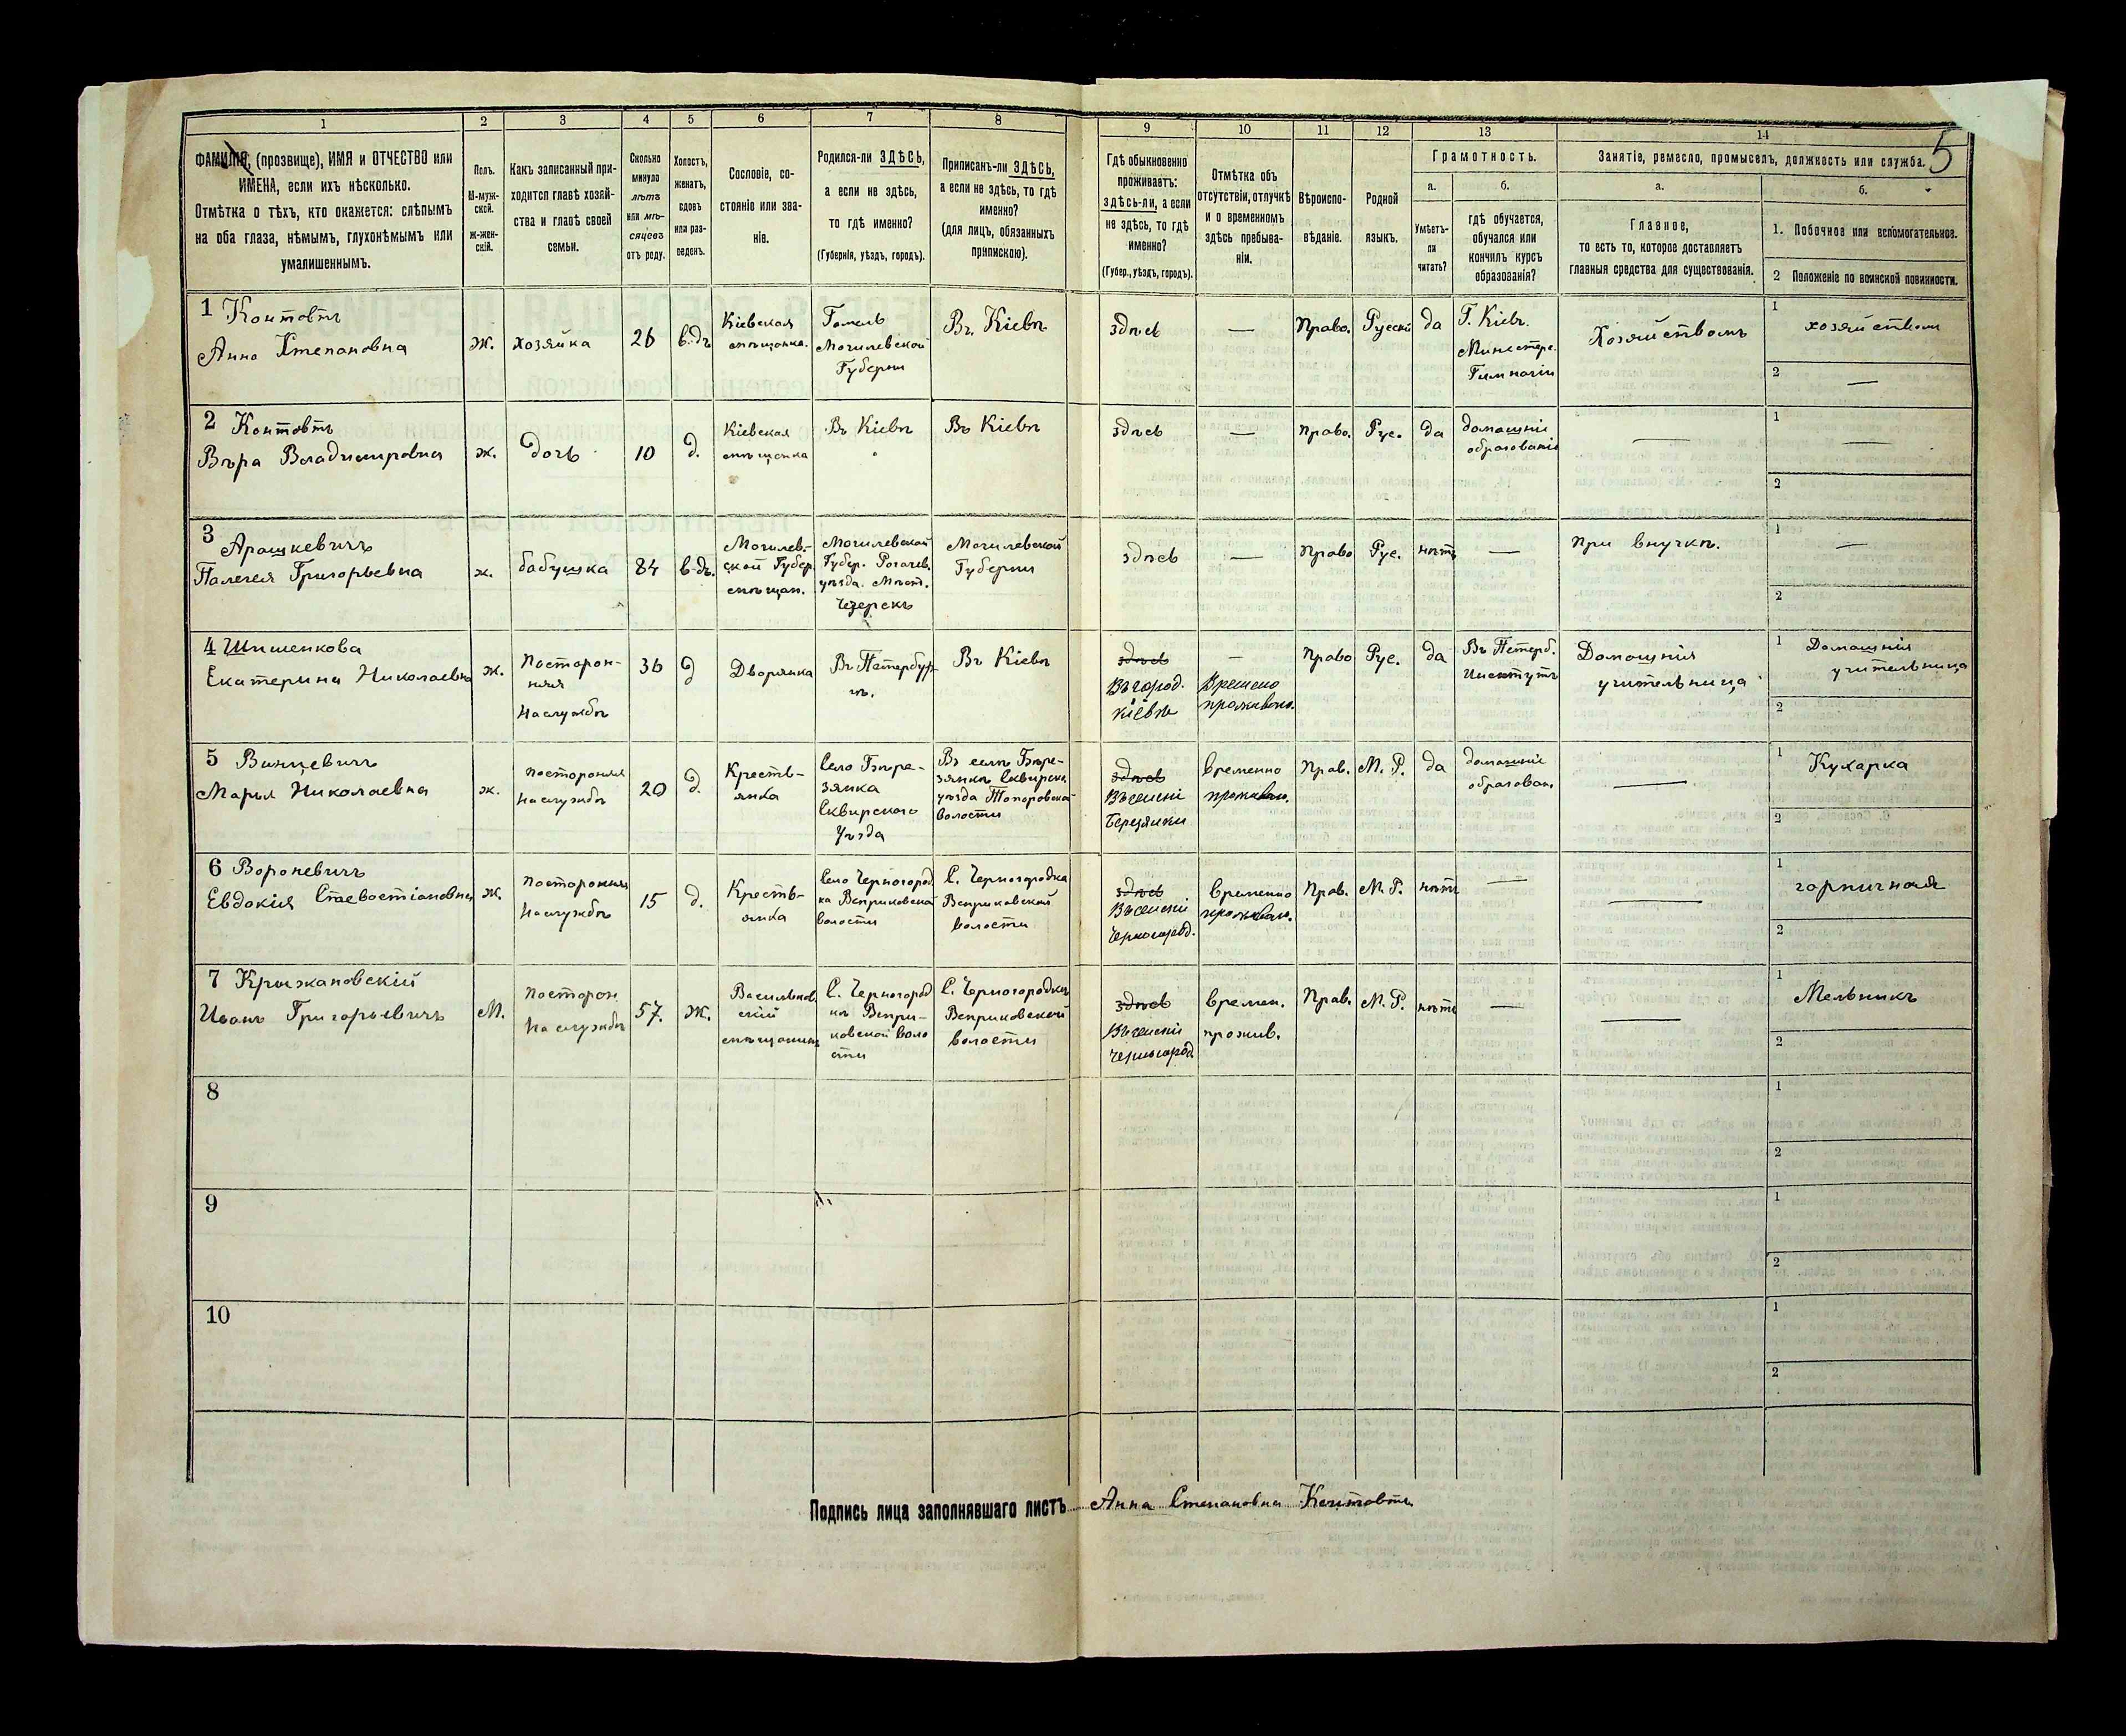 1 2 3 4 5 6 7 8 9 10 11 12 13 14
5
ФАМИЛІЯ, (прозвище), ИМЯ и ОТЧЕСТВО или
ИМЕНА, если ихъ нѣсколько.
Отмѣтка о тѣхъ, кто окажется: слѣпымъ
на оба глаза, нѣмымъ, глухонѣмымъ или
умалишеннымъ.
Полъ.
М-муж-
ской.
ж-жен-
скій.
Какъ записанный при-
ходится главѣ хозяй-
ства и главѣ своей
семьи.
Сколько
минуло
лѣтъ
или мѣ-
сяцевъ
отъ роду.
Холостъ,
женатъ,
вдовъ
или раз-
веденъ.
Сословіе, со-
стояніе или зва-
ніе.
Родился-ли ЗДѢСЬ,
а если не здѣсь,
то гдѣ именно?
(Губернія, уѣздъ, городъ).
Приписанъ-ли ЗДѢСЬ,
а если не здѣсь, то гдѣ
именно?
(для лицъ, обязанныхъ
припискою).
Гдѣ обыкновенно
проживаетъ:
здѣсь-ли, а если
не здѣсь, то гдѣ
именно?
(Губер., уѣздъ, городъ).
Отмѣтка объ
отсутствіи, отлучкѣ
и о временномъ
здѣсь пребыва-
ніи.
Вѣроиспо-
вѣданіе.
Родной
языкъ.
Грамотность.
а.
Умѣетъ-
ли
читать?
б.
гдѣ обучается,
обучался или
кончилъ курсъ
образованія?
Занятіе, ремесло, промыселъ, должность или служба.
а.
Главное,
то есть то, которое доставляетъ
главныя средства для существованія.
б.
1. Побочное или вспомогательное.
2 Положеніе по воинской повинности.
1 Контовтъ
Анна Степановна
ж.
хозяйка
26
в-дъ
Кіевская
мѣщанка.
Гомель
Могилевской
Губерни
Въ Кіевѣ
здѣсь
—
Право.
Русскій
да
Г. Кіевъ.
Министерс.
Гимназіи
Хозяйствомъ
1
хозяйствомъ
2
—
2 Контовтъ
Вѣра Владимировна
ж.
дочь
10
д.
Кіевская
мѣщанка
Въ Кіевѣ
Въ Кіевѣ
здѣсь
—
право.
Рус.
да
домашніе
образованіе
—
1
—
2
3 Арашкевичъ
Палегея Григорьевна
ж.
бабушка
84
в-дъ.
Могилев-
ской Губер.
мѣщан.
Могилевской
Губер. Рогачев.
уѣзда. Мѣст.
Чечерскъ
Могилевской
Губерни
здѣсь
—
право
Рус.
нѣтъ
—
при внучкѣ.
1
—
2
4 Шишенкова
Екатерина Николаевна
ж.
Посторон-
няя
На службѣ
36
д
Дворянка
Въ Петербур-
гѣ.
Въ Кіевѣ
здѣсь
Въ город.
Кіевѣ
—
Времено
проживаю.
право
Рус.
да
Въ Петерб.
Институтѣ
Домашнія
учительница
1 Домашнія
учительница
2
5 Винцевичъ
Марья Николаевна
ж.
посторонняя
На службѣ
20
д.
Кресть-
янка
Село Бѣре-
зянка
Сквирского
Уѣзда
Въ селѣ Бѣре-
зянкѣ Сквирско.
уѣзда Топоровской
волости
здѣсь
Въ селѣнiі
Березянки
Временно
проживаю.
Прав.
М. Р.
да
домашніе
образован.
—
1
Кухарка
2
6 Вороневичъ
Евдокія Стаевостіановна
ж.
посторонняя
На службѣ
15
д.
Кресть-
янка
Село Черногород
ка Веприковской
волости
С. Черногородка
Веприковской
волости
здѣсь
Въ селѣнiі
Черногород.
Временно
проживаю.
Прав.
М. Р.
нѣтъ
—
—
1
горничная
2
7 Крыжановскій
Иванъ Григорьевичъ
М.
посторон
На службѣ
57.
Ж.
Васильков.
скій
мѣщанинъ
С. Черногород
кѣ Вепри-
ковской воло
сти
С. Черногородкѣ
Веприковской
волости
здѣсь
Въ селѣнiі
Черногород
времен.
прожив.
Прав.
М. Р.
нѣтъ
—
—
1
Мельникъ
2
8
1
2
9
1
2
10
1
2
Подпись лица заполнявшаго листъ Анна Степановна Контовтъ